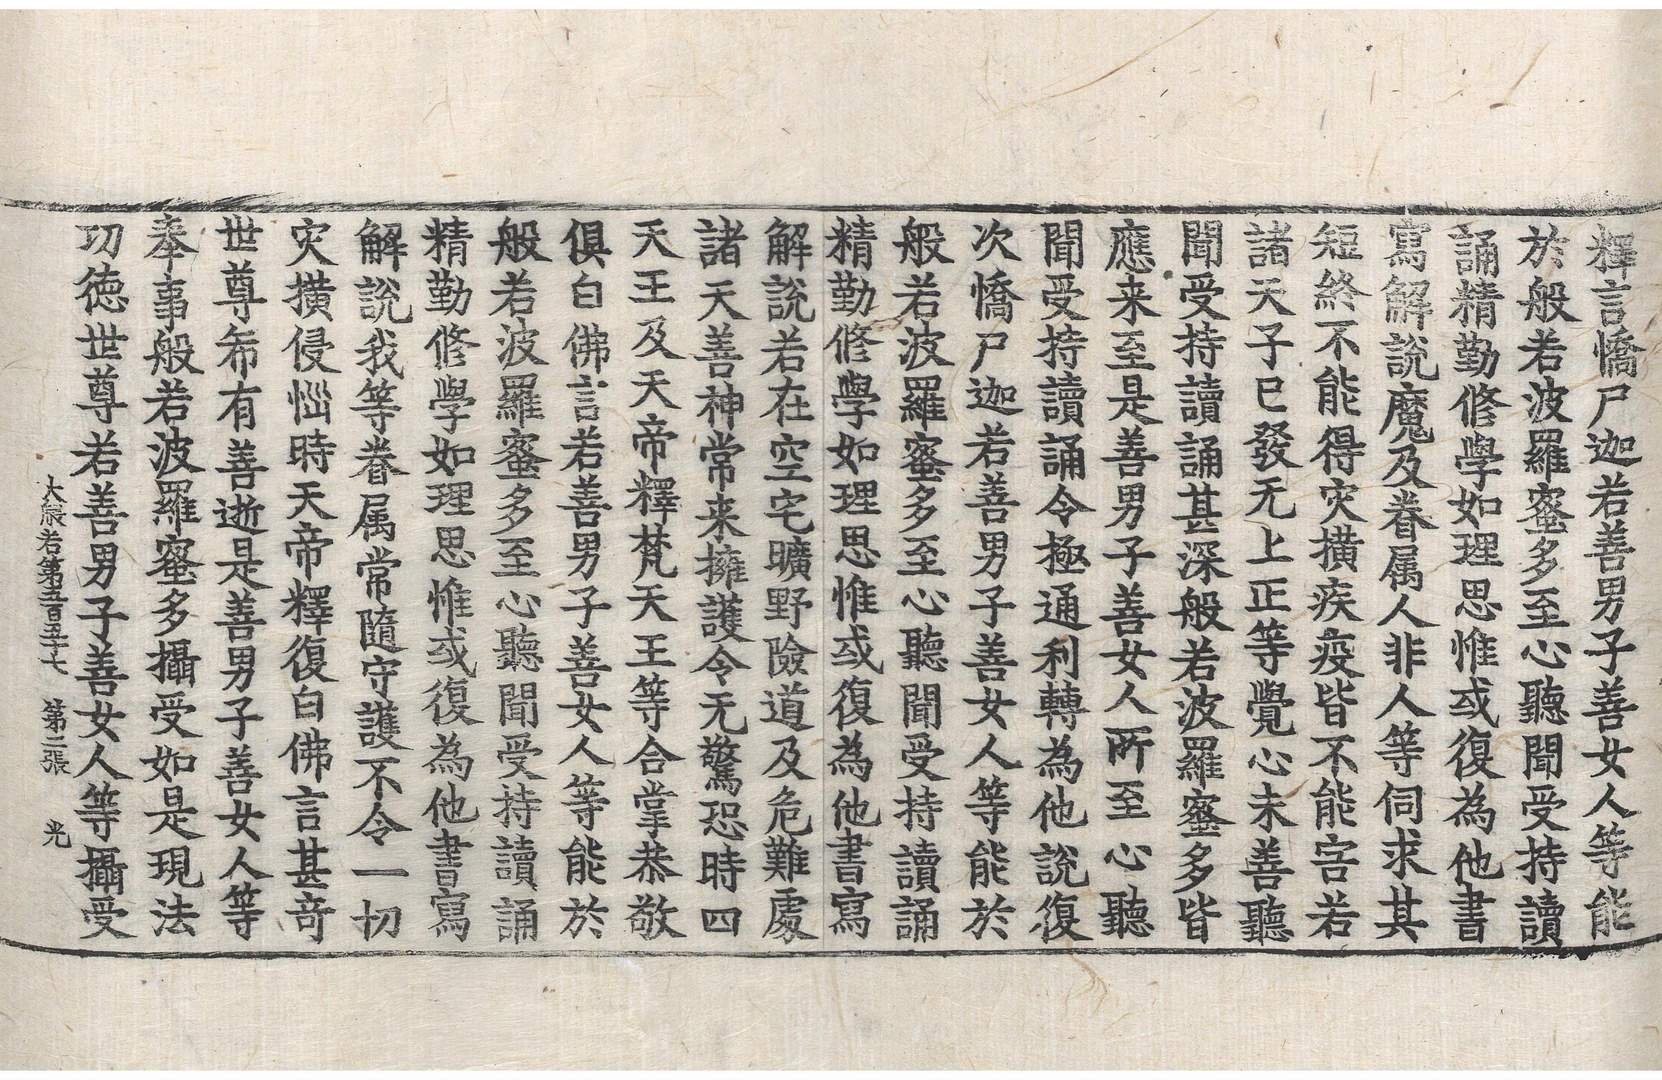 釋言憍尸迦若善男子善女人等能
於般若波羅蜜多至心聽聞受持讀
誦精勤修學如理思惟或復為他書
寫解說魔及眷属人非人等伺求其
短終不能得灾撗疾疫皆不能害若
諸天子已發无上正等覺心未善聽
聞受持讀誦甚深般若波羅蜜多皆
應来至是善男子善女人所至心聽
聞受持讀誦令極通利轉為他說復
次憍尸迦若善男子善女人等能於
般若波羅蜜多至心聽聞受持讀誦
精勤修學如理思惟或復為他書寫
解說若在空宅曠野險道及危難處
諸天善神常来擁護令无驚恐時四
天王及天帝釋梵天王等合掌恭敬
俱白佛言若善男子善女人等能於
般若波羅蜜多至心聽聞受持讀誦
精勤修學如理思惟或復為他書寫
解說我等眷属常隨守護不令一切
灾撗侵惱時天帝釋復白佛言甚奇
世尊希有善逝是善男子善女人等
奉事般若波羅蜜多攝受如是現法
功徳世尊若善男子善女人等攝受
大般若第五百五十七 第二張 光